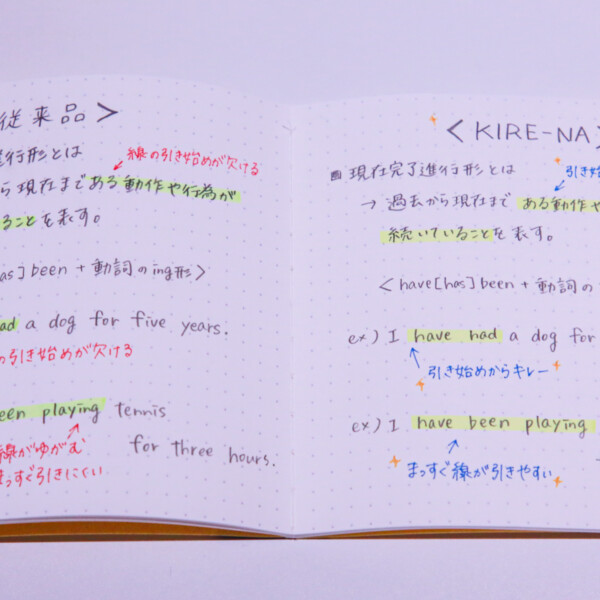 従来品>
進行形とは
線の引き始めが欠ける
ら現在まである動作や行為が
ることを表す。
as]been+動詞のing形>
ad a dog for five years.
の引き始めが欠ける
een playing tennis
for three hours.
線がゆがむ
まっすぐ引きにくい
<KIRE-NA>
現在完了進行形とは
引き始
→ 過去から現在まで ある動作や
続いていることを表す。
<have[has]been+動詞の
ex) I have had a dog for
引き始めからキレー
ex) I have been playing
まっすぐ線が引きやすい